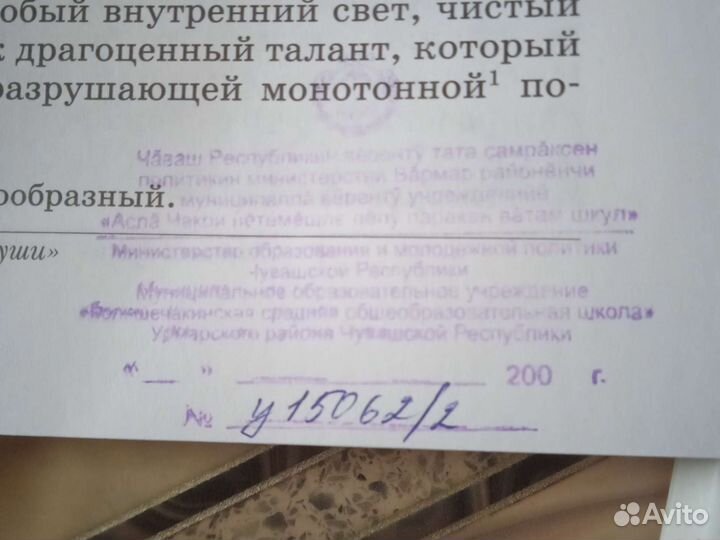 обый внутренний свет, чистый
к драгоценный талант, который
разрушающей монотонной¹ по-
Чӑваш Республикин вӗрентӳ тата самрӑксен
политикин министерстви Вӑрмар районӗнчи
муниципаллӑ вӗрентӳ учрежденийӗ
ообразный.
«Аслӑ Чакӑ пӗтӗмӗшле пӗлӳ паракан вӑтам шкул»
уши»
Министерство образования и молодежной политики
Чувашской Республики
Муниципальное образовательное учреждение
«Большечакинская средняя общеобразовательная школа»
Урмарского района Чувашской Республики
«__ » ________ 200 г.
№ у15062/2
Avito